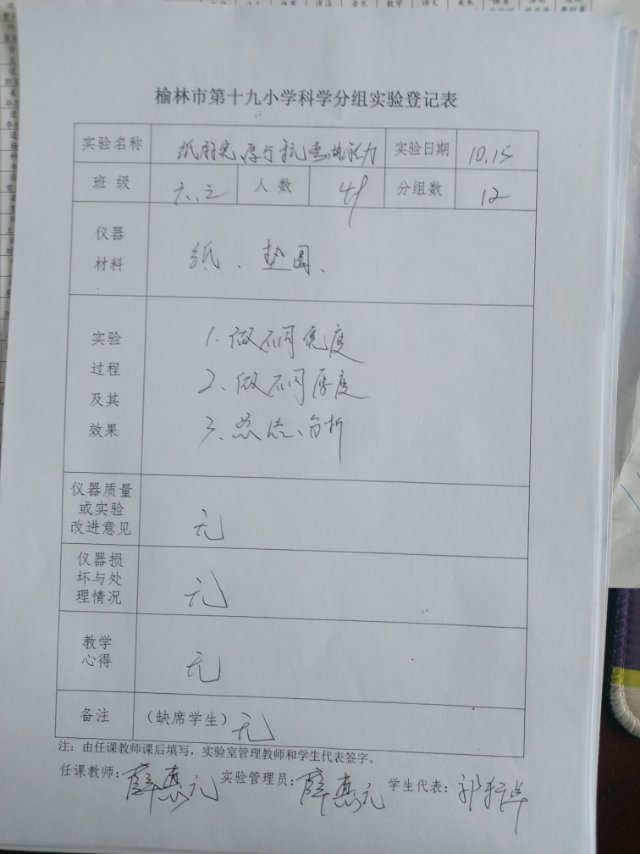 榆林市第十九小学科学分组实验登记表
实验名称 纸的宽厚与抗弯曲能力 实验日期 10.15
班级 六.2 人数 49 分组数 12
仪器材料 纸、垫圈、
实验过程及其效果
1. 做不同宽度
2. 做不同厚度
3. 总结、分析
仪器质量
或实验
改进意见 无
仪器损
坏与处
理情况 无
教学
心得 无
备注 (缺席学生) 无
注：由任课教师课后填写，实验室管理教师和学生代表签字。
任课教师: 薛 元 实验管理员: 薛 元 学生代表: